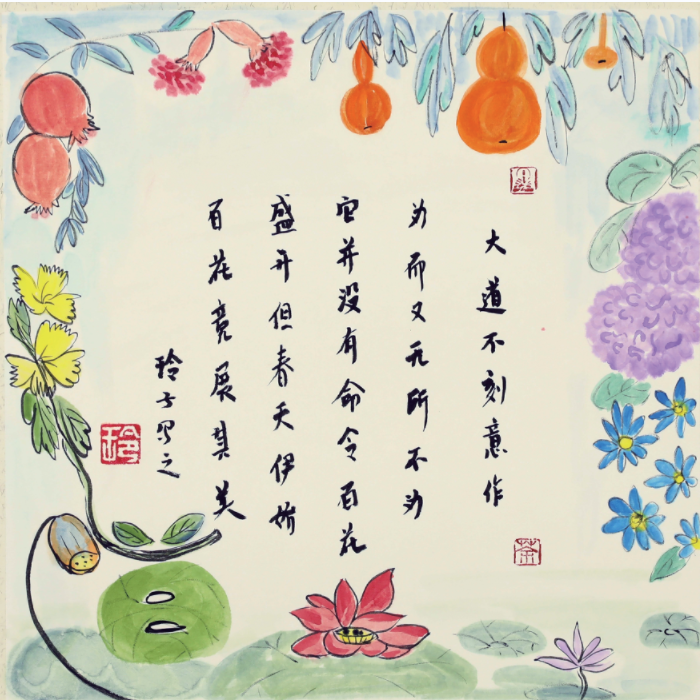 大道不刻意作
为而又无所不为
它并没有命令百花
盛开但春天伊始
百花竞展其美
玲子写之
玲
茶